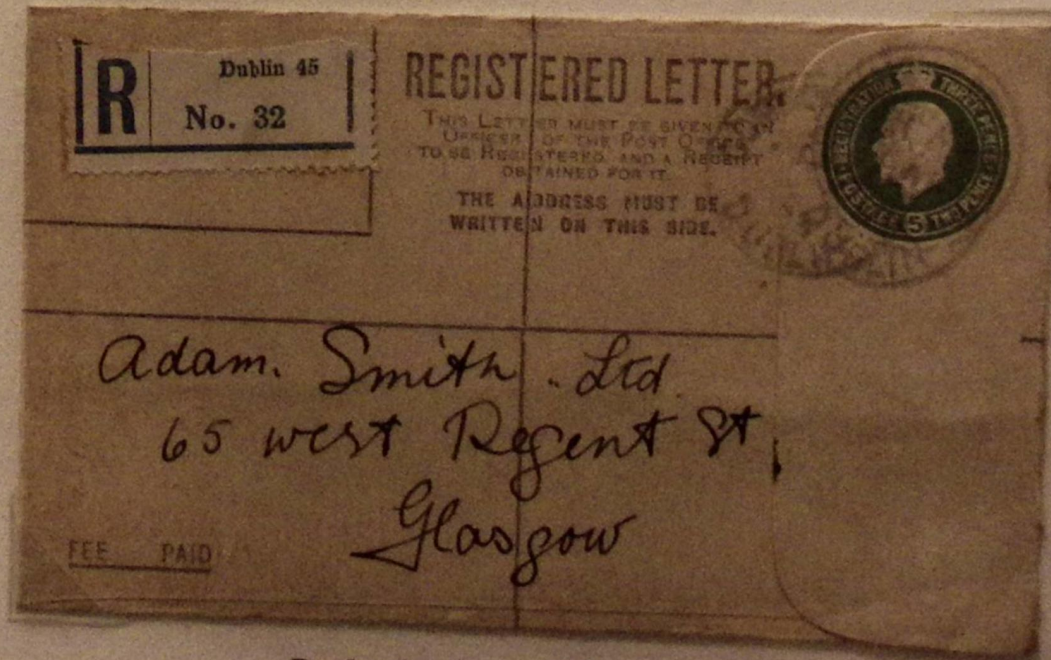 R
Dublin 45
No. 32
REGISTERED LETTER.
THIS LETTER MUST BE GIVEN TO AN
OFFICER OF THE POST OFFICE
TO BE REGISTERED, AND A RECEIPT
OBTAINED FOR IT.
THE ADDRESS MUST BE
WRITTEN ON THIS SIDE.
REGISTRATION THREE PENCE
POSTAGE 5 TWO PENCE
Adam. Smith. Ltd.
65 west Regent St,
Glasgow
FEE PAID